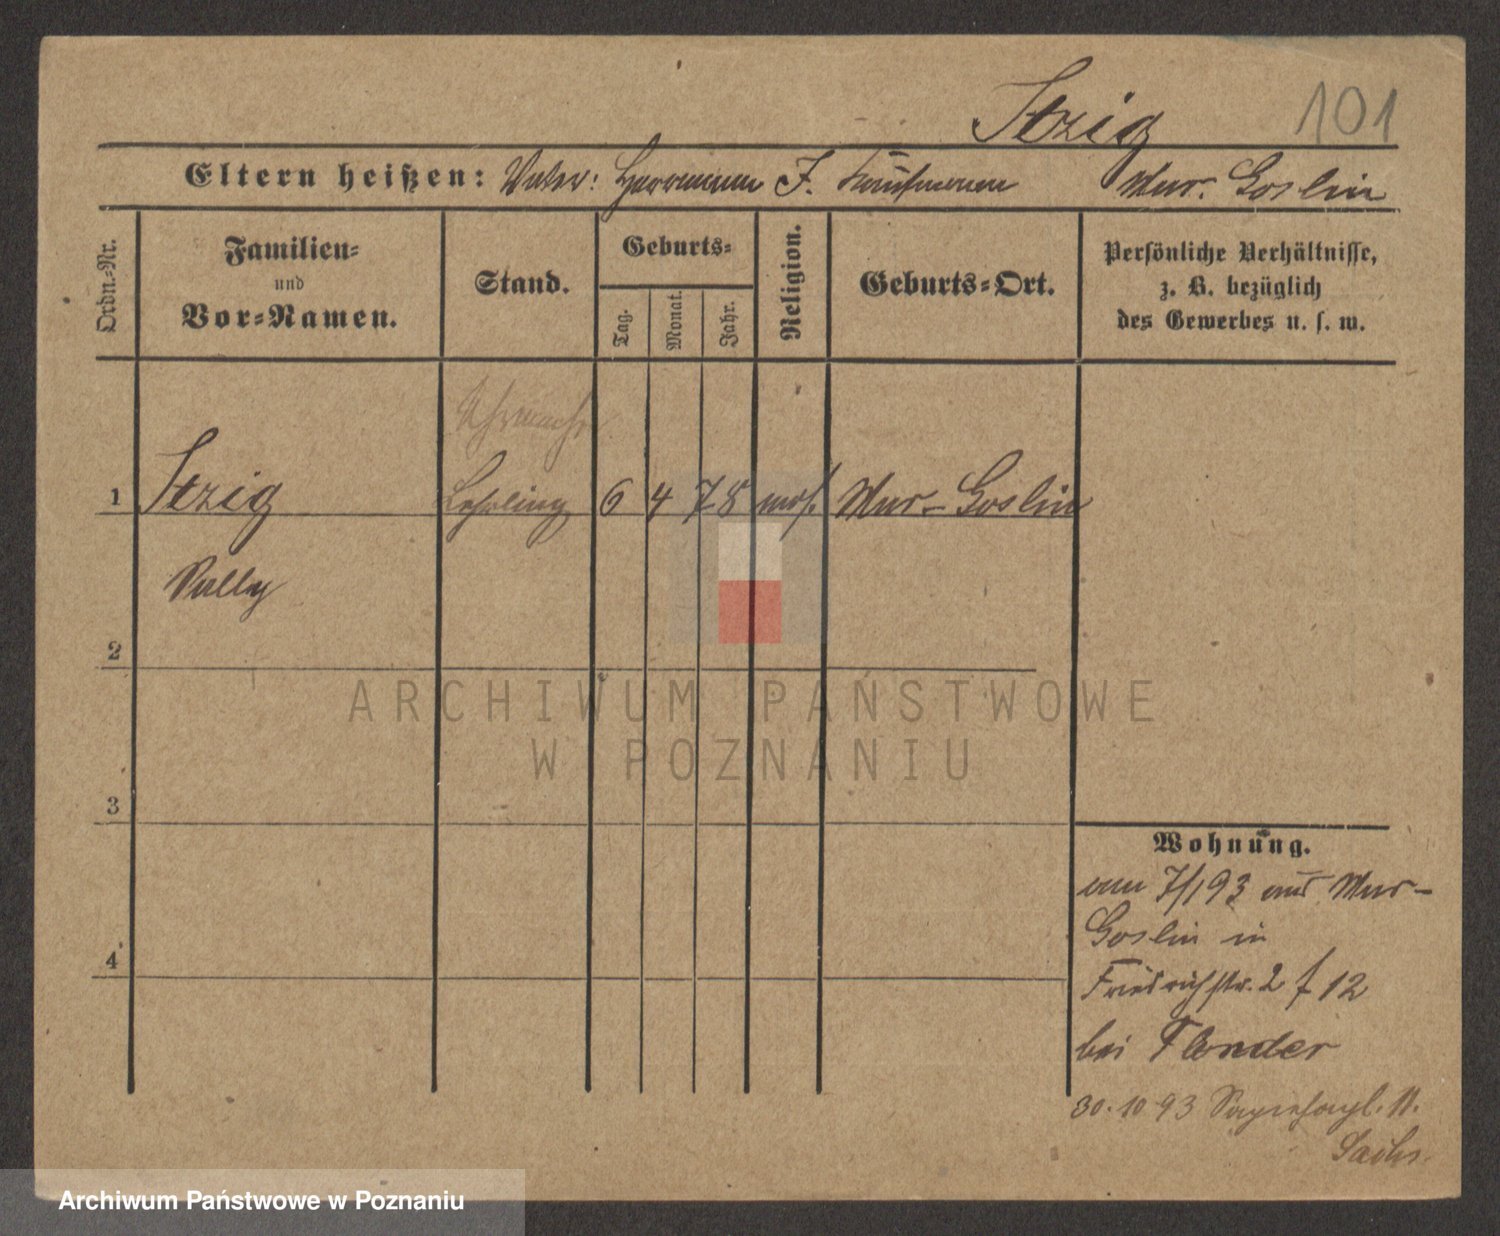 Itzig 101
Eltern heißen: Vater: Herrmann J. Kaufmann Mur. Goslin
Ordn.-Nr.
Familien-
und
Vor-Namen.
Stand.
Geburts-
Tag.
Monat.
Jahr.
Religion.
Geburts-Ort.
Persönliche Verhältnisse,
z. B. bezüglich
des Gewerbes u. s. w.
Uhrmacher
1 Itzig Lehrling 6 4 78 mos. Mur-Goslin
Sally
2
ARCHIWUM PAŃSTWOWE
W POZNANIU
3
4
Wohnung.
am 7/1 93 aus Mur-
Goslin in
Friedrichstr. 2 f 12
bei Flonder
30.10 93 11.
Sachs.
Archiwum Państwowe w Poznaniu